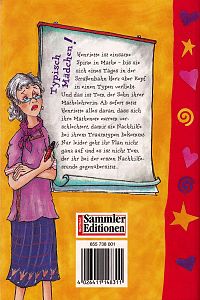 Typisch
Mädchen!
Henriette ist einsame
Spitze in Mathe - bis sie
sich eines Tages in der
Straßenbahn Hals über Kopf
in einen Typen verliebt.
Und das ist Tom, der Sohn ihrer
Mathelehrerin. Ab sofort setzt
Henriette alles daran, dass sich
ihre Mathenoten enorm ver-
schlechtert, damit sie Nachhilfe
bei ihrem Traumtypen bekommt.
Nur leider geht ihr Plan nicht
ganz auf und es ist nicht Tom,
der ihr bei der ersten Nachhilfe-
stunde gegenübersitzt.
Sammler
Editionen
655 738 001
4 026411 148311